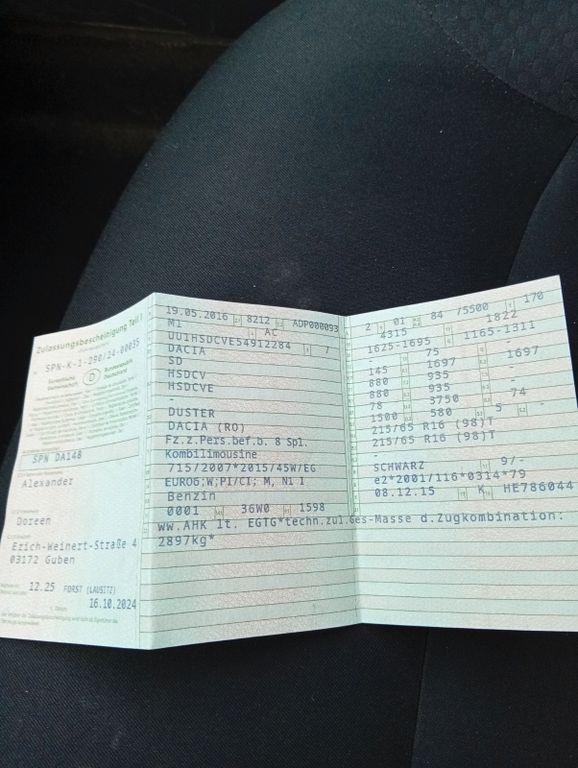 Zulassungsbescheinigung Teil I
SPN-K-1-280/24-00035
Europäische Gemeinschaft
D
Bundesrepublik Deutschland
SPN DA148
Alexander
Doreen
Erich-Weinert-Straße 4
03172 Guben
12.25 FORST (LAUSITZ)
16.10.2024
19.05.2016 8212 ADP000093
M1 AC
UU1HSDCVE54912284 7
DACIA
SD
HSDCV
HSDCVE
-
DUSTER
DACIA (RO)
Fz.z.Pers.bef.b. 8 Spl.
Kombilimousine
715/2007*2015/45W/EG
EURO6;W;PI/CI; M, N1 I
Benzin
0001 36W0 1598
ww.AHK lt. EGTG*techn.zul.Ges-Masse d.Zugkombination:
2897kg*
2 01 84 /5500 170
4315 1822
1625-1695 1165-1311
- 75 -
145 1697 1697
880 935 -
880 935 -
78 3750 74
1500 580 5 -
215/65 R16 (98)T
215/65 R16 (98)T
-
SCHWARZ 9/-
e2*2001/116*0314*79
08.12.15 K HE786044